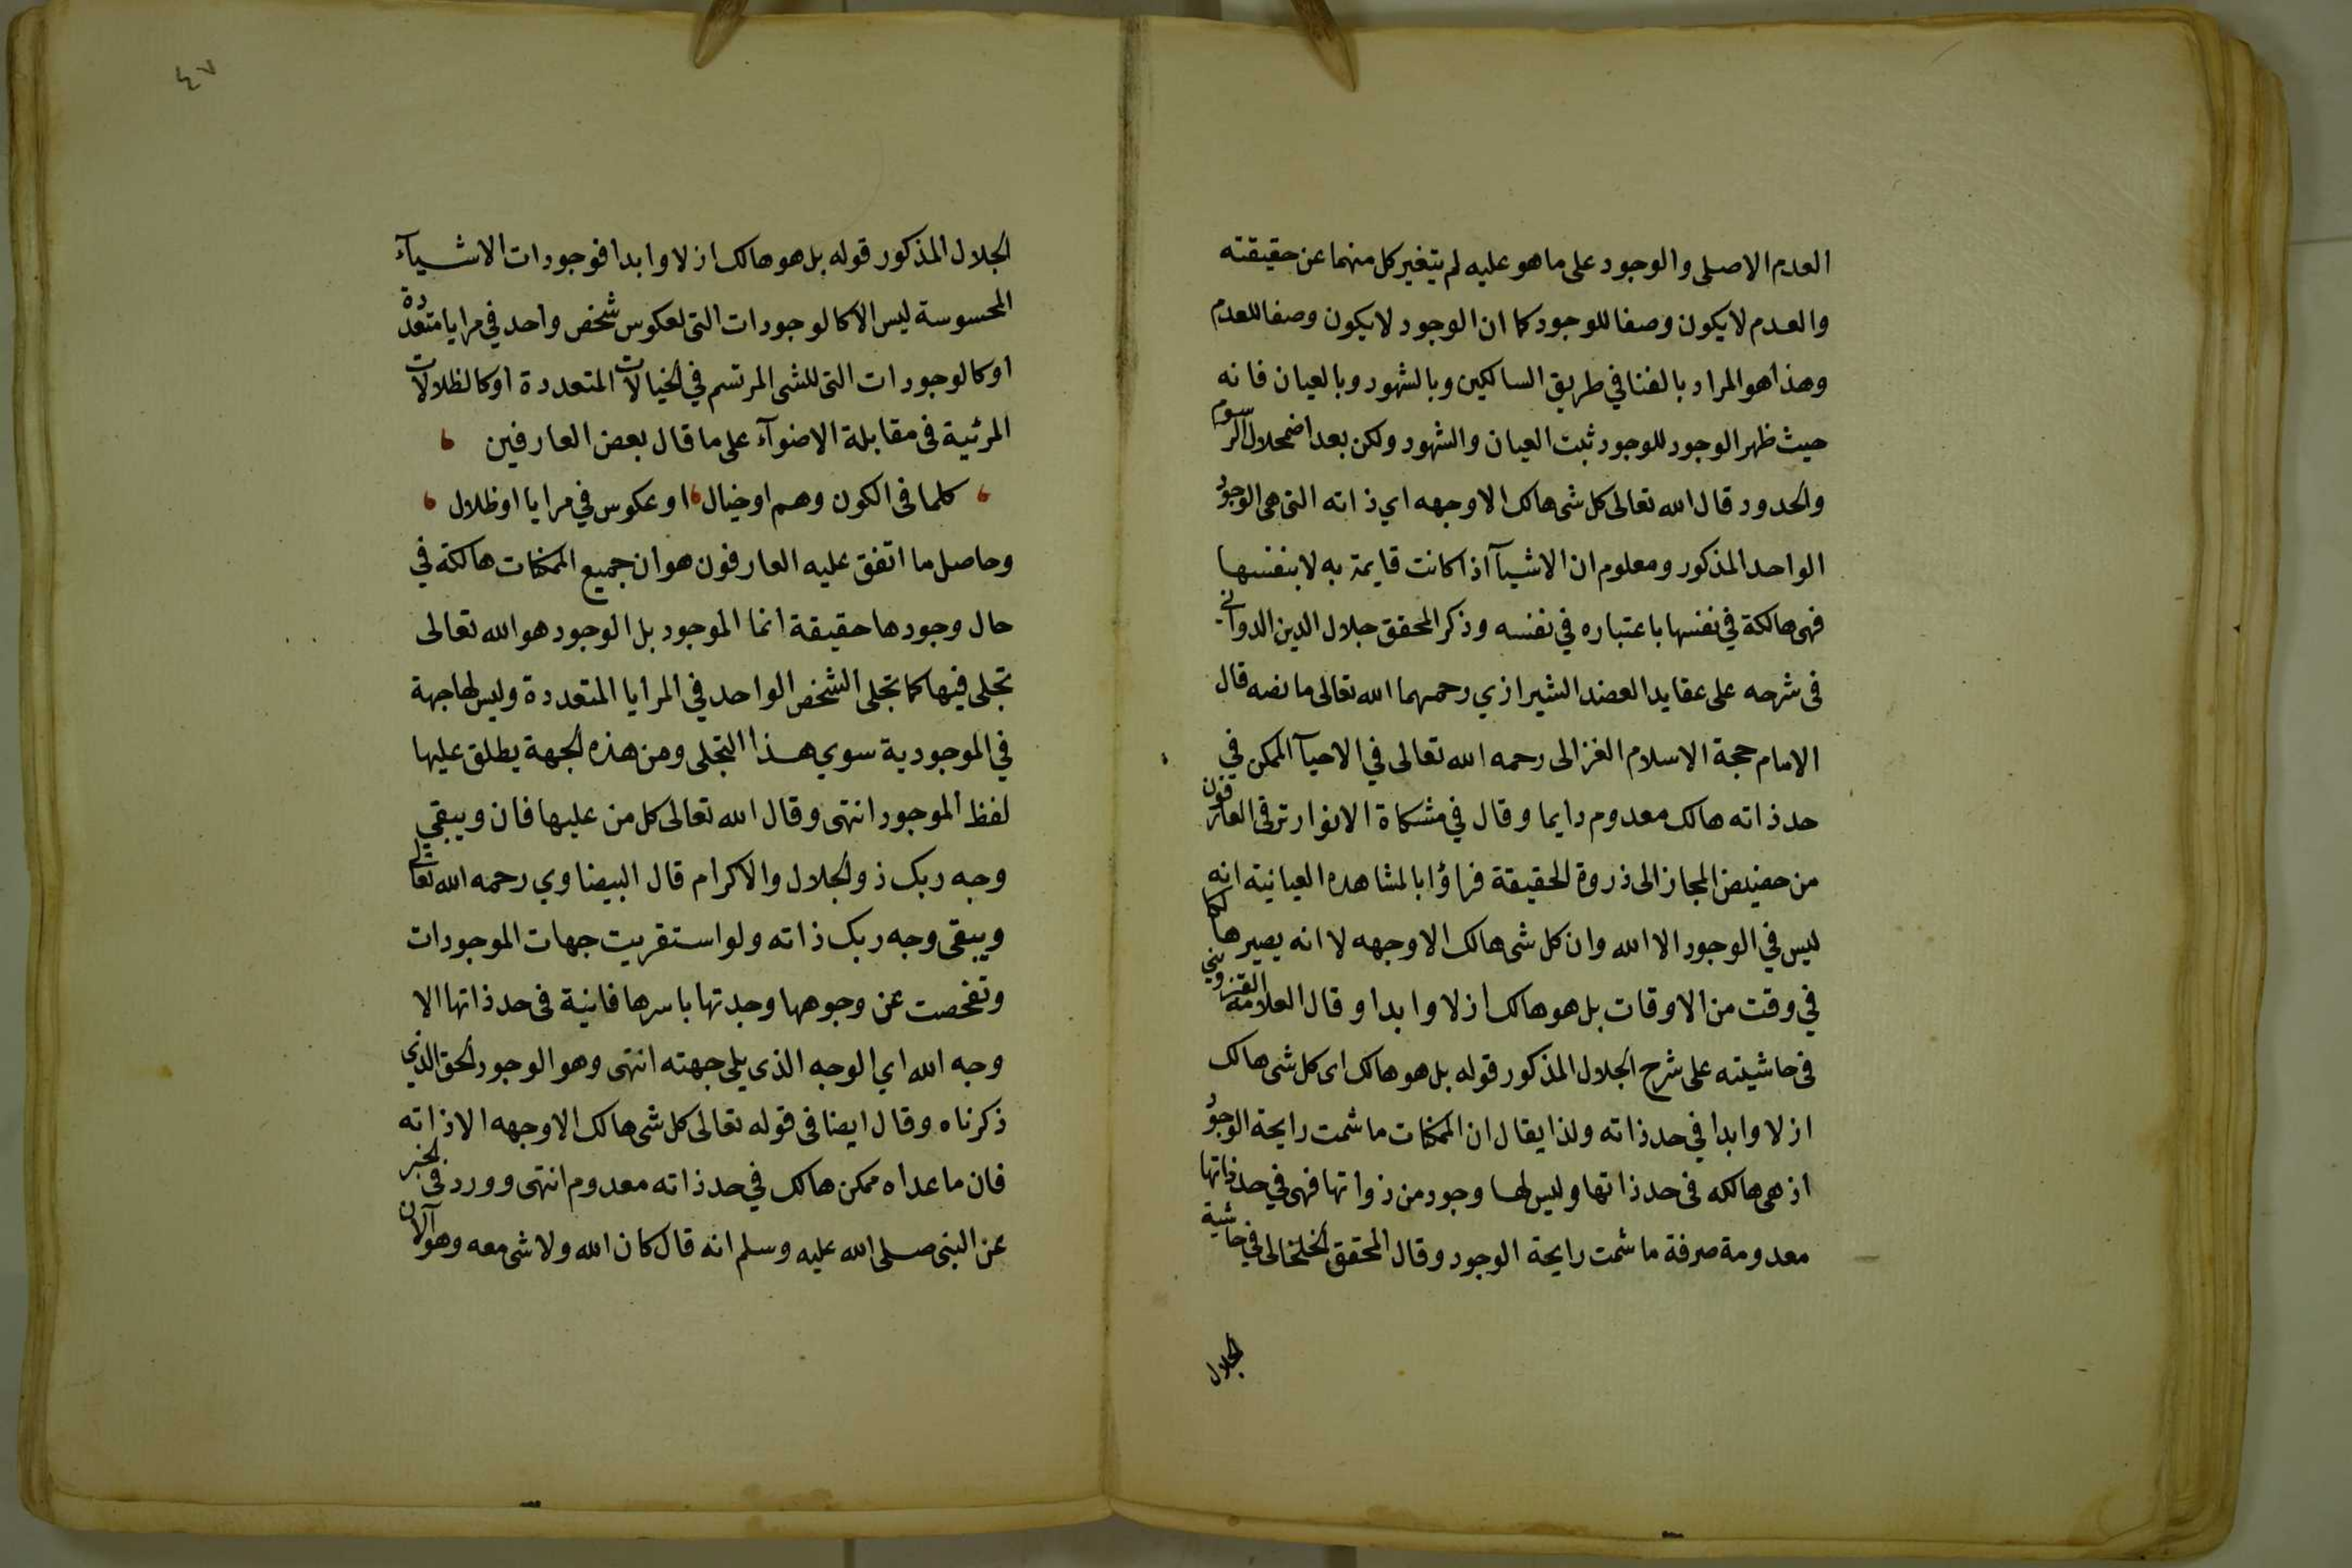 العدم الاصلى والوجود على ما هو عليه لم يتغير كل منهما عن حقيقته
والعدم لا يكون وصفا للوجود كما ان الوجود لا يكون وصفا للعدم
وهذا هو المراد بالفنا في طريق السالكين وبالشهود وبالعيان فانه
حيث ظهر الوجود للوجود ثبت العيان والشهود ولكن بعد اضمحلال الرسوم
والحدود قال الله تعالى كل شى هالك الا وجهه اي ذاته التى هى الوجود
الواحد المذكور ومعلوم ان الاشيآ اذا كانت قايمة به لا بنفسها
فهى هالكة في نفسها باعتباره في نفسه وذكر المحقق جلال الدين الدوانى
فى شرحه على عقايد العضد الشيرازي رحمهما الله تعالى ما نصه قال
الامام حجة الاسلام الغزالى رحمه الله تعالى في الاحيآ الممكن في
حد ذاته هالك معدوم دايما وقال في مشكاة الانوار ترقى العارفون
من حضيض المجاز الى ذروة الحقيقة فراؤا بالمشاهده العيانية انه
ليس في الوجود الا الله وان كل شى هالك الا وجهه لا انه يصير هالكا
في وقت من الاوقات بل هو هالك ازلا وابدا وقال العلامة القزويني
فى حاشيته على شرح الجلال المذكور قوله بل هو هالك اى كل شى هالك
ازلا وابدا في حد ذاته ولذا يقال ان الممكنات ما شمت رايحة الوجود
اذ هى هالكه فى حد ذاتها وليس لها وجود من ذواتها فهى في حد ذاتها
معدومة صرفة ما شمت رايحة الوجود وقال المحقق الخلخالى في حاشية
الجلال
٤٧
الجلال المذكور قوله بل هو هالك ازلا وابدا فوجودات الاشيآء
المحسوسة ليس الا كالوجودات التى لعكوس شخص واحد في مرايا متعددة
او كالوجودات التى للشى المرتسم في الخيالات المتعددة او كالظلالات
المرئية فى مقابلة الاضوآء على ما قال بعض العارفين
كلما فى الكون وهم او خيال او عكوس في مرايا او ظلال
وحاصل ما اتفق عليه العارفون هو ان جميع الممكنات هالكة في
حال وجودها حقيقة انما الموجود بل الوجود هو الله تعالى
تجلى فيها كما تجلى الشخص الواحد في المرايا المتعددة وليس لها جهة
في الموجودية سوي هذا التجلى ومن هذه الجهة يطلق عليها
لفظ الموجود انتهى وقال الله تعالى كل من عليها فان ويبقي
وجه ربك ذو الجلال والاكرام قال البيضاوي رحمه الله تعالى
ويبقى وجه ربك ذاته ولو استقريت جهات الموجودات
وتفحصت عن وجوهها وجدتها باسرها فانية فى حد ذاتها الا
وجه الله اي الوجه الذى يلى جهته انتهى وهو الوجود الحق الذي
ذكرناه وقال ايضا فى قوله تعالى كل شى هالك الا وجهه الا ذاته
فان ما عداه ممكن هالك في حد ذاته معدوم انتهى وورد فى الخبر
عن النبى صلى الله عليه وسلم انه قال كان الله ولا شى معه وهو الآن